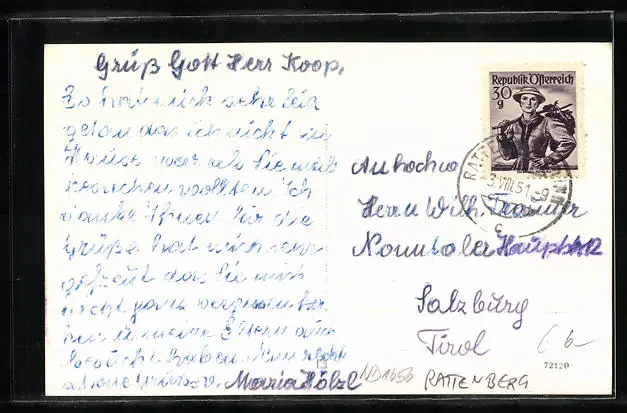 Grüß Gott Herr Koop,
Es hat mich sehr leid
getan das ich nicht zu
Hause war als Sie mich
besuchen wollten. Ich
danke Ihnen für die
Grüße hat mich sehr
gefreut das Sie mich
nicht ganz vergessen
haben u. meine Eltern auch
besucht haben. Nun recht
schöne Grüße v. Maria Hölzl
Republik Österreich
30
g
3.VIII.51-9
c
An hochw
Herrn Wilh.
Nonntaler Hauptstr
Salzburg
Tirol
6-
72120
ND1656
RATTENBERG